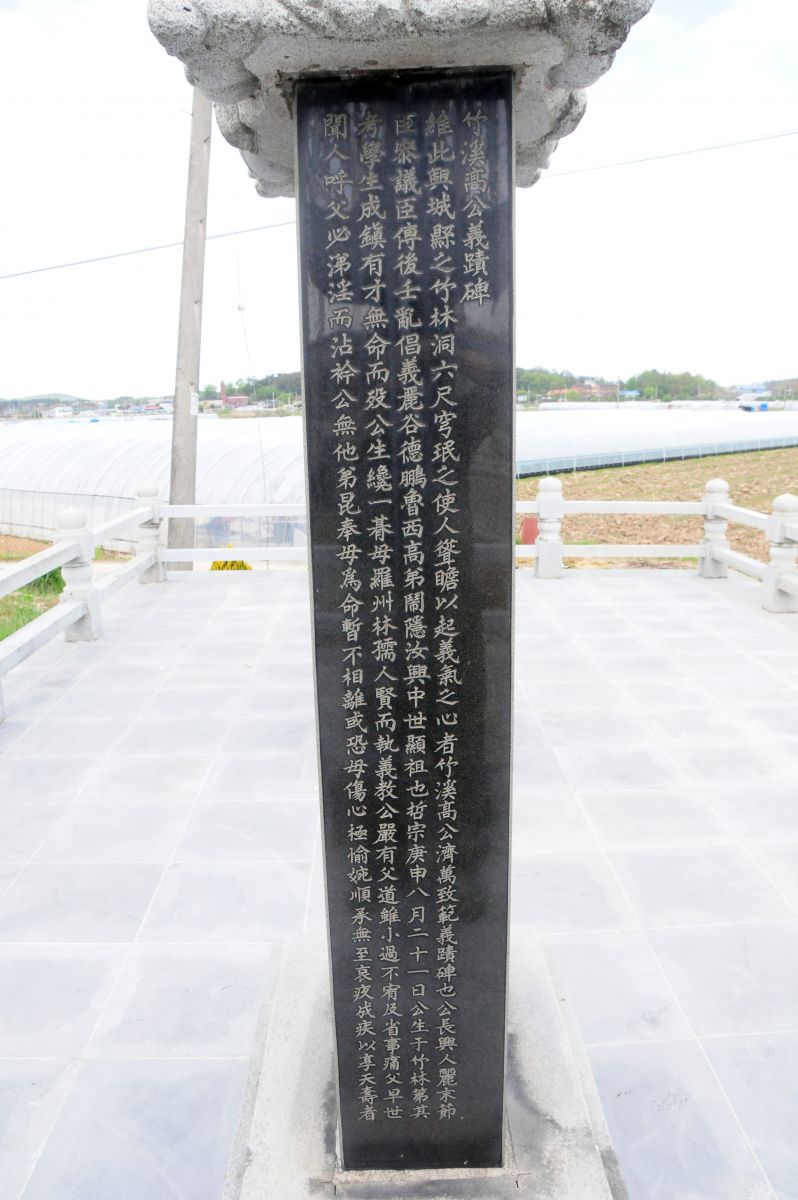 竹溪高公義蹟碑
維此興城縣之竹林洞六尺穹珉之使人聳瞻以起義氣之心者竹溪高公濟萬致範義蹟碑也公長興人麗末節
臣參議臣傅後壬亂倡義麗谷德鵬魯西高弟鬧隱汝興中世顯祖也哲宗庚申八月二十一日公生于竹林第其
考學生成鎭有才無命而歿公生纔一朞母羅州林孺人賢而執義教公嚴有父道雖小過不宥及省事痛父早世
聞人呼父必涕淫而沾衿公無他弟昆奉母爲命暫不相離或恐母傷心極愉婉順承無至哀疚成疾以享天壽者